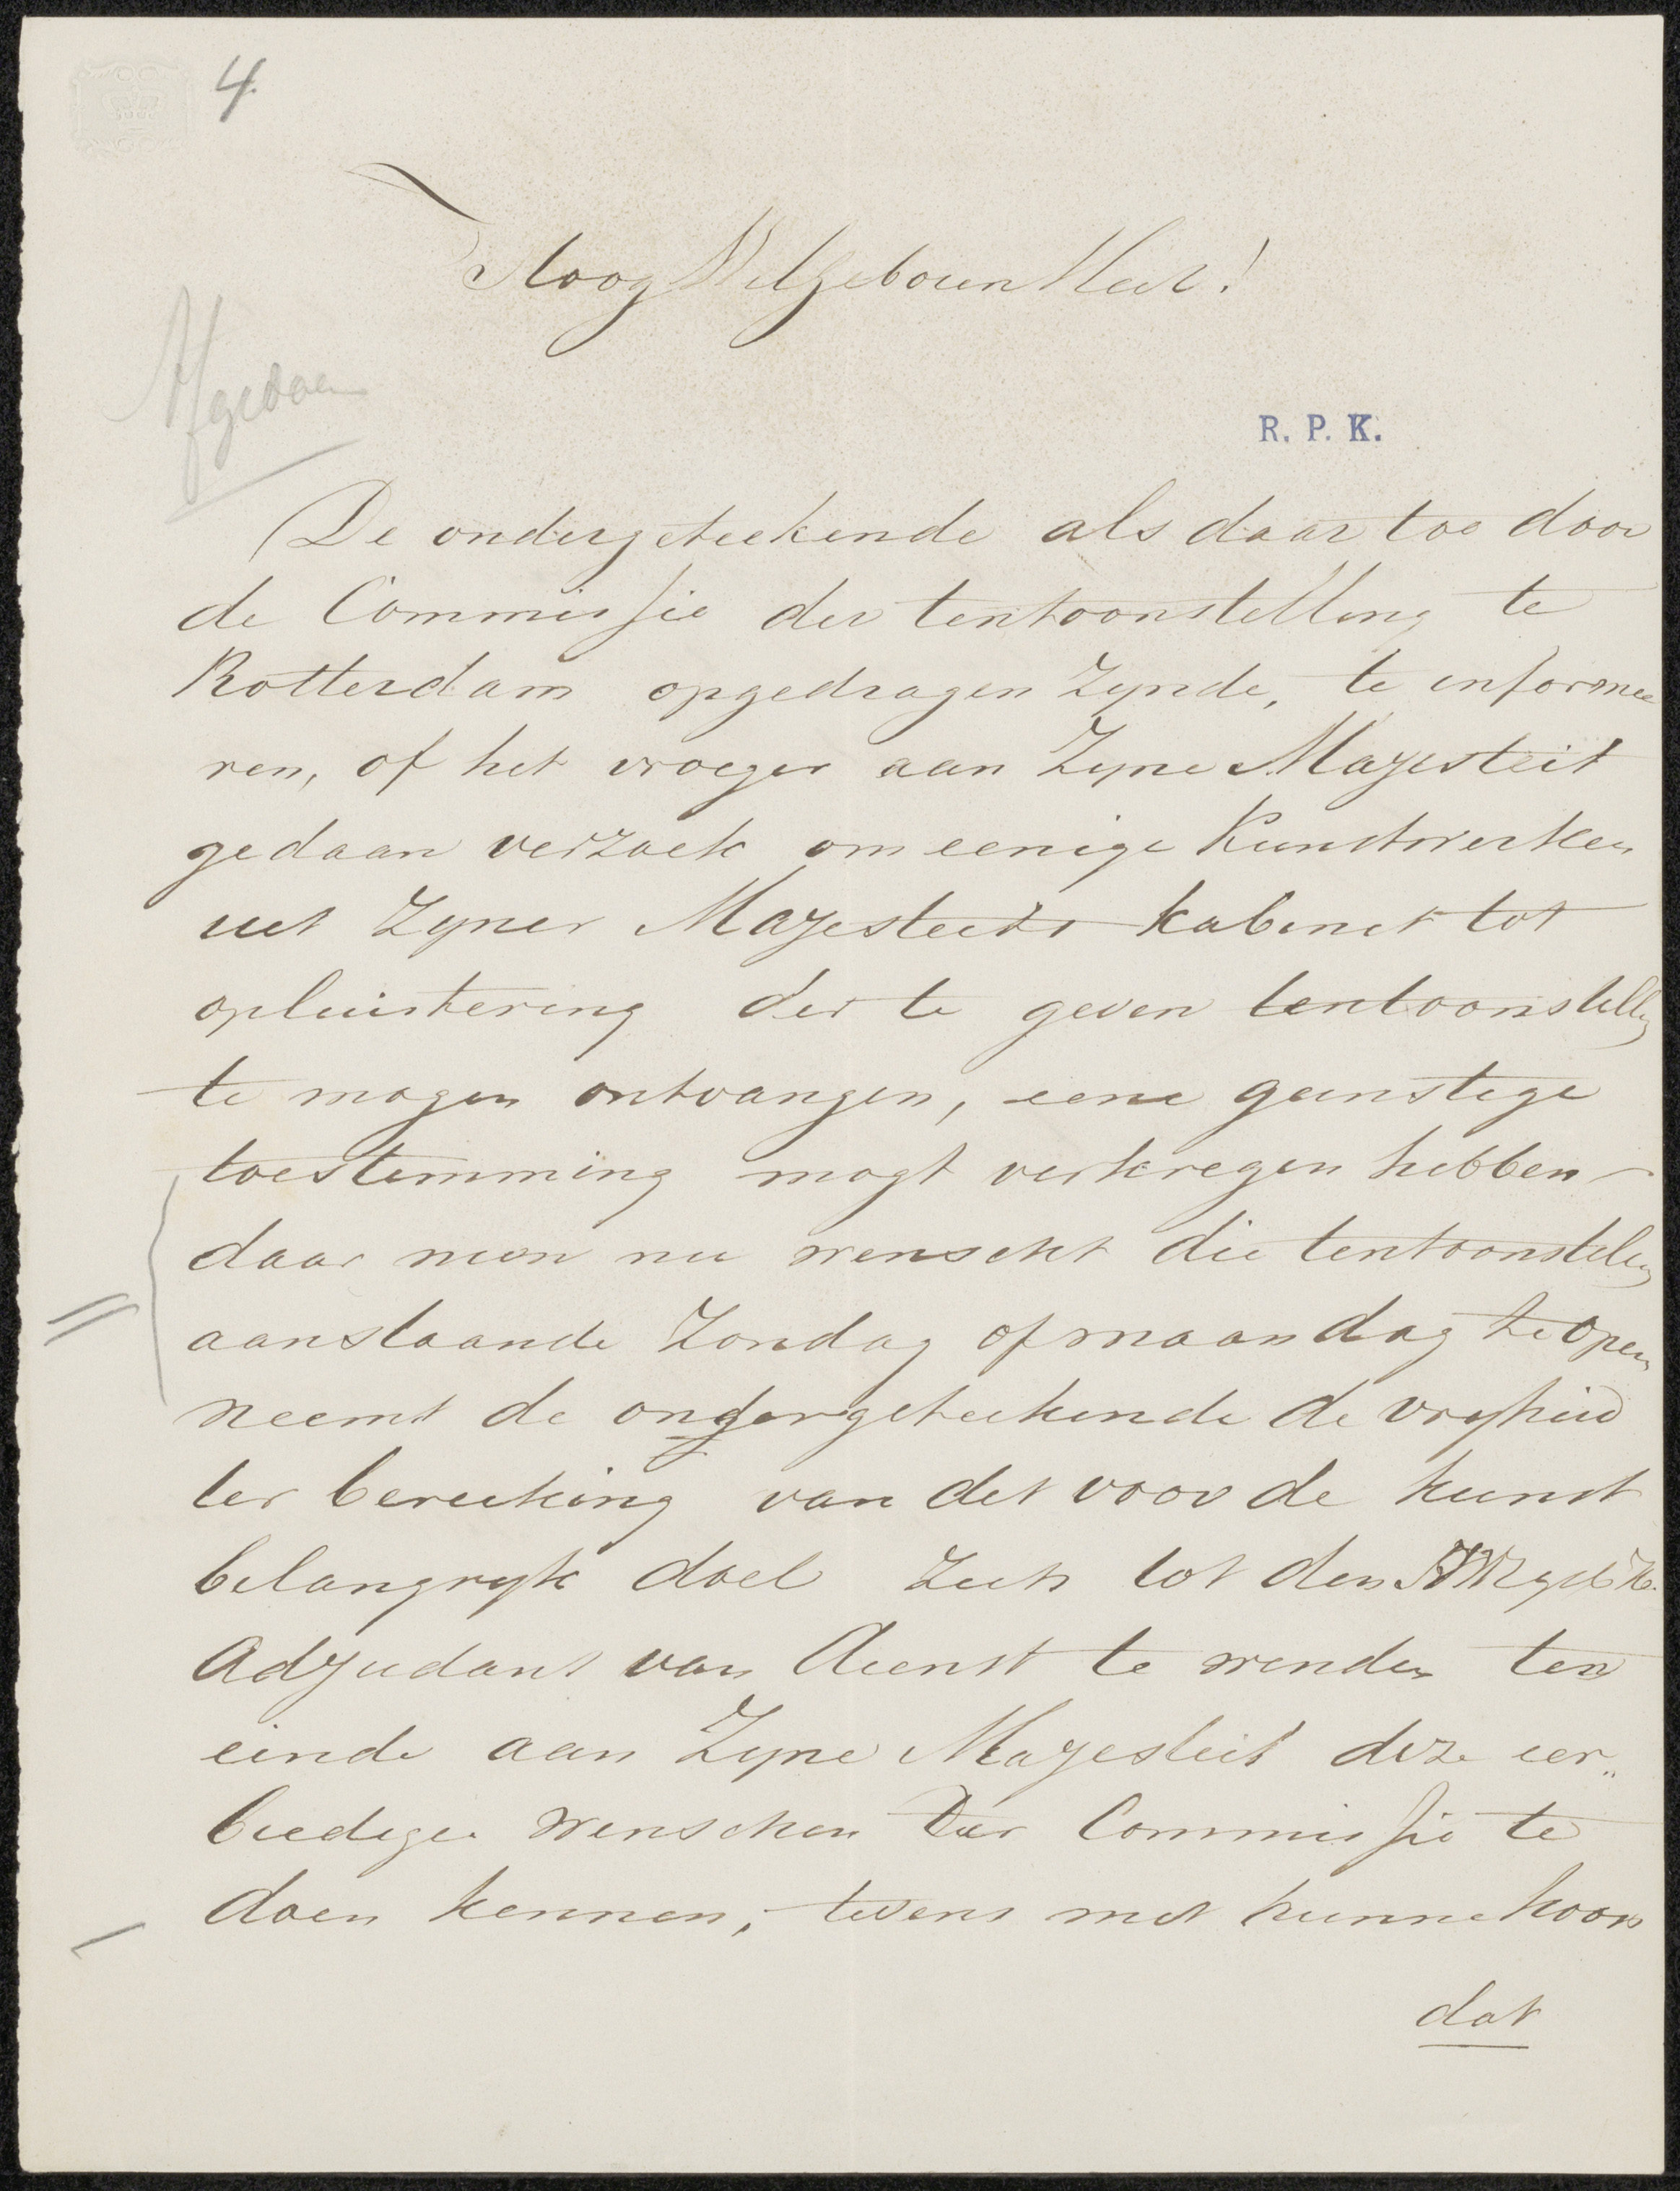 4.
Hoog Welgeboren Heer!
Afgedaan
R. P. K.
De ondergeteekende als daar toe door
de Commissie der tentoonstelling te
Rotterdam opgedragen Zynde, te informee
ren, of het vroeger aan Zyne Majesteit
gedaan verzoek om eenige Kunstwerken
uit Zyner Majesteits kabinet tot
opluistering der te geven tentoonstelling
te mogen ontvangen, eene gunstige
toestemming mogt verkregen hebben -
daar men nu wenscht die tentoonstelling
aanstaande Zondag of maandag te open
neemt de ondergeteekende de vryheid
ter bereiking van det voor de kunst
belangryk doel Zich tot den
Adjudant van dienst te wenden ten
einde aan Zyne Majesteit deze eer„
biedige wenschen der Commissie te
doen kennen, tevens met hunne hoop
dat